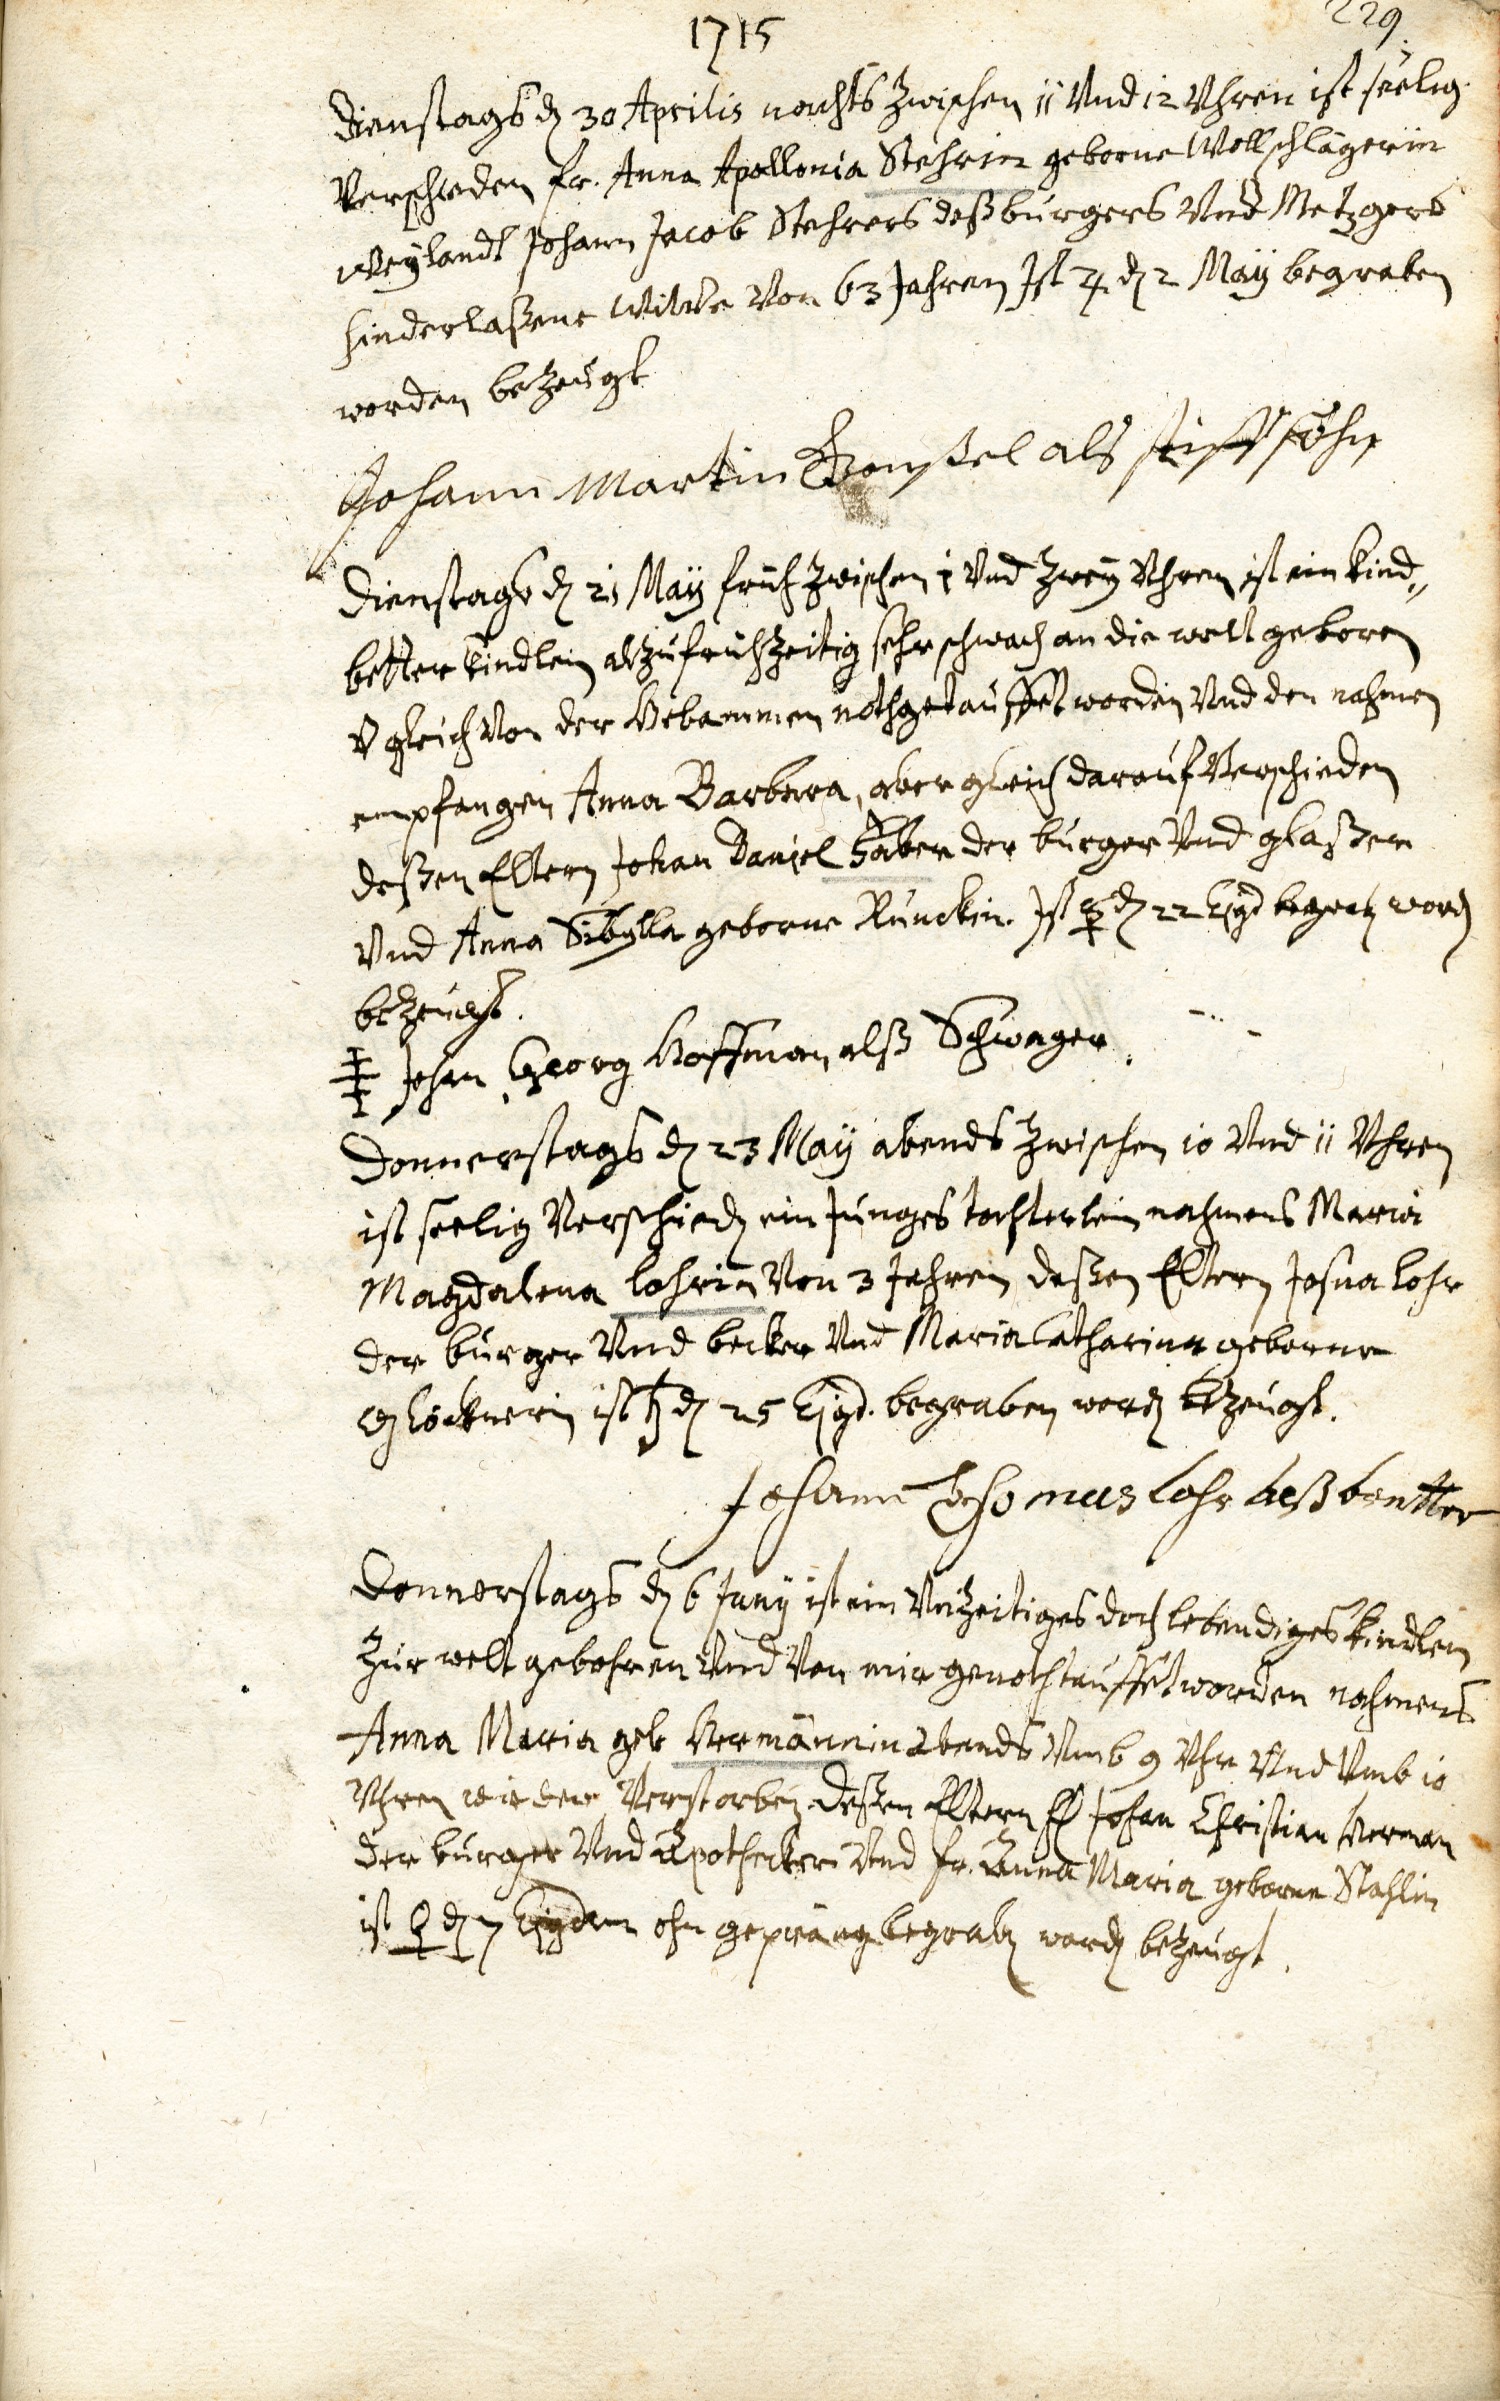 1715
229.
Dienstags d. 30 Aprilis nachts zwischen 11 Vnd 12 Vhren ist seelig
Verschieden fr. Anna Apollonia Stehrerin geborne Wollschlägerin
weylandt Johann Jacob Stehrers deß burgers Vnd Metzgers
hinderlaßene Witwe Von 63 Jahren Ist ♃ d. 2 Maÿ begraben
worden bezeugt
Johann Martin als stiff sohn
Dienstags d. 21 Maÿ fruh zwischen 1 Vnd zweÿ Vhren ist ein kind„
better kindlein alzufruhzeitig sehr schwach an die welt geboren
V gleich Von der Hebammen nothgetauffet worden Vnd den nahmen
empfangen Anna Barbara, aber gleich darauf Verschieden
deßen Eltern Johan Daniel Faber der burger Vnd glaßer
Vnd Anna Sibylla geborne Runckin. Ist ☿ d. 22 Ejsd begrab. word.
bezeugt.
Johan Georg Hoffman alß Schwager.
Donnerstags d. 23 Maÿ abends zwischen 10 Vnd 11 Vhren
ist seelig Verschied. ein Junges tochterlein nahmens Maria
Magdalena Lohrin Von 3 Jahren deßen Eltern Josua Lohr
der burger Vnd becker Vnd Maria Catharina geborne
Glöcknerin ist ♄ d. 25 Ejsd. begraben word. bezeugt.
Johann Thomas Lohr deß
Donnerstags d. 6 Junÿ ist ein Vnzeitiges doch lebendiges kindlein
zur welt gebohren Vnd Von mir genothtauffet worden nahmens
Anna Maria geb Hermännin Abends Vmb 9 Vhr Vnd Vmb 10
Vhren wieder Verstorben deßen Eltern H Johan Christian Herman
der burger Vnd Apothecker Vnd fr. Anna Maria geborne Stahlin
ist ♀ d. 7 Ejsdem ohn gepräng begrab. word. bezeugt.